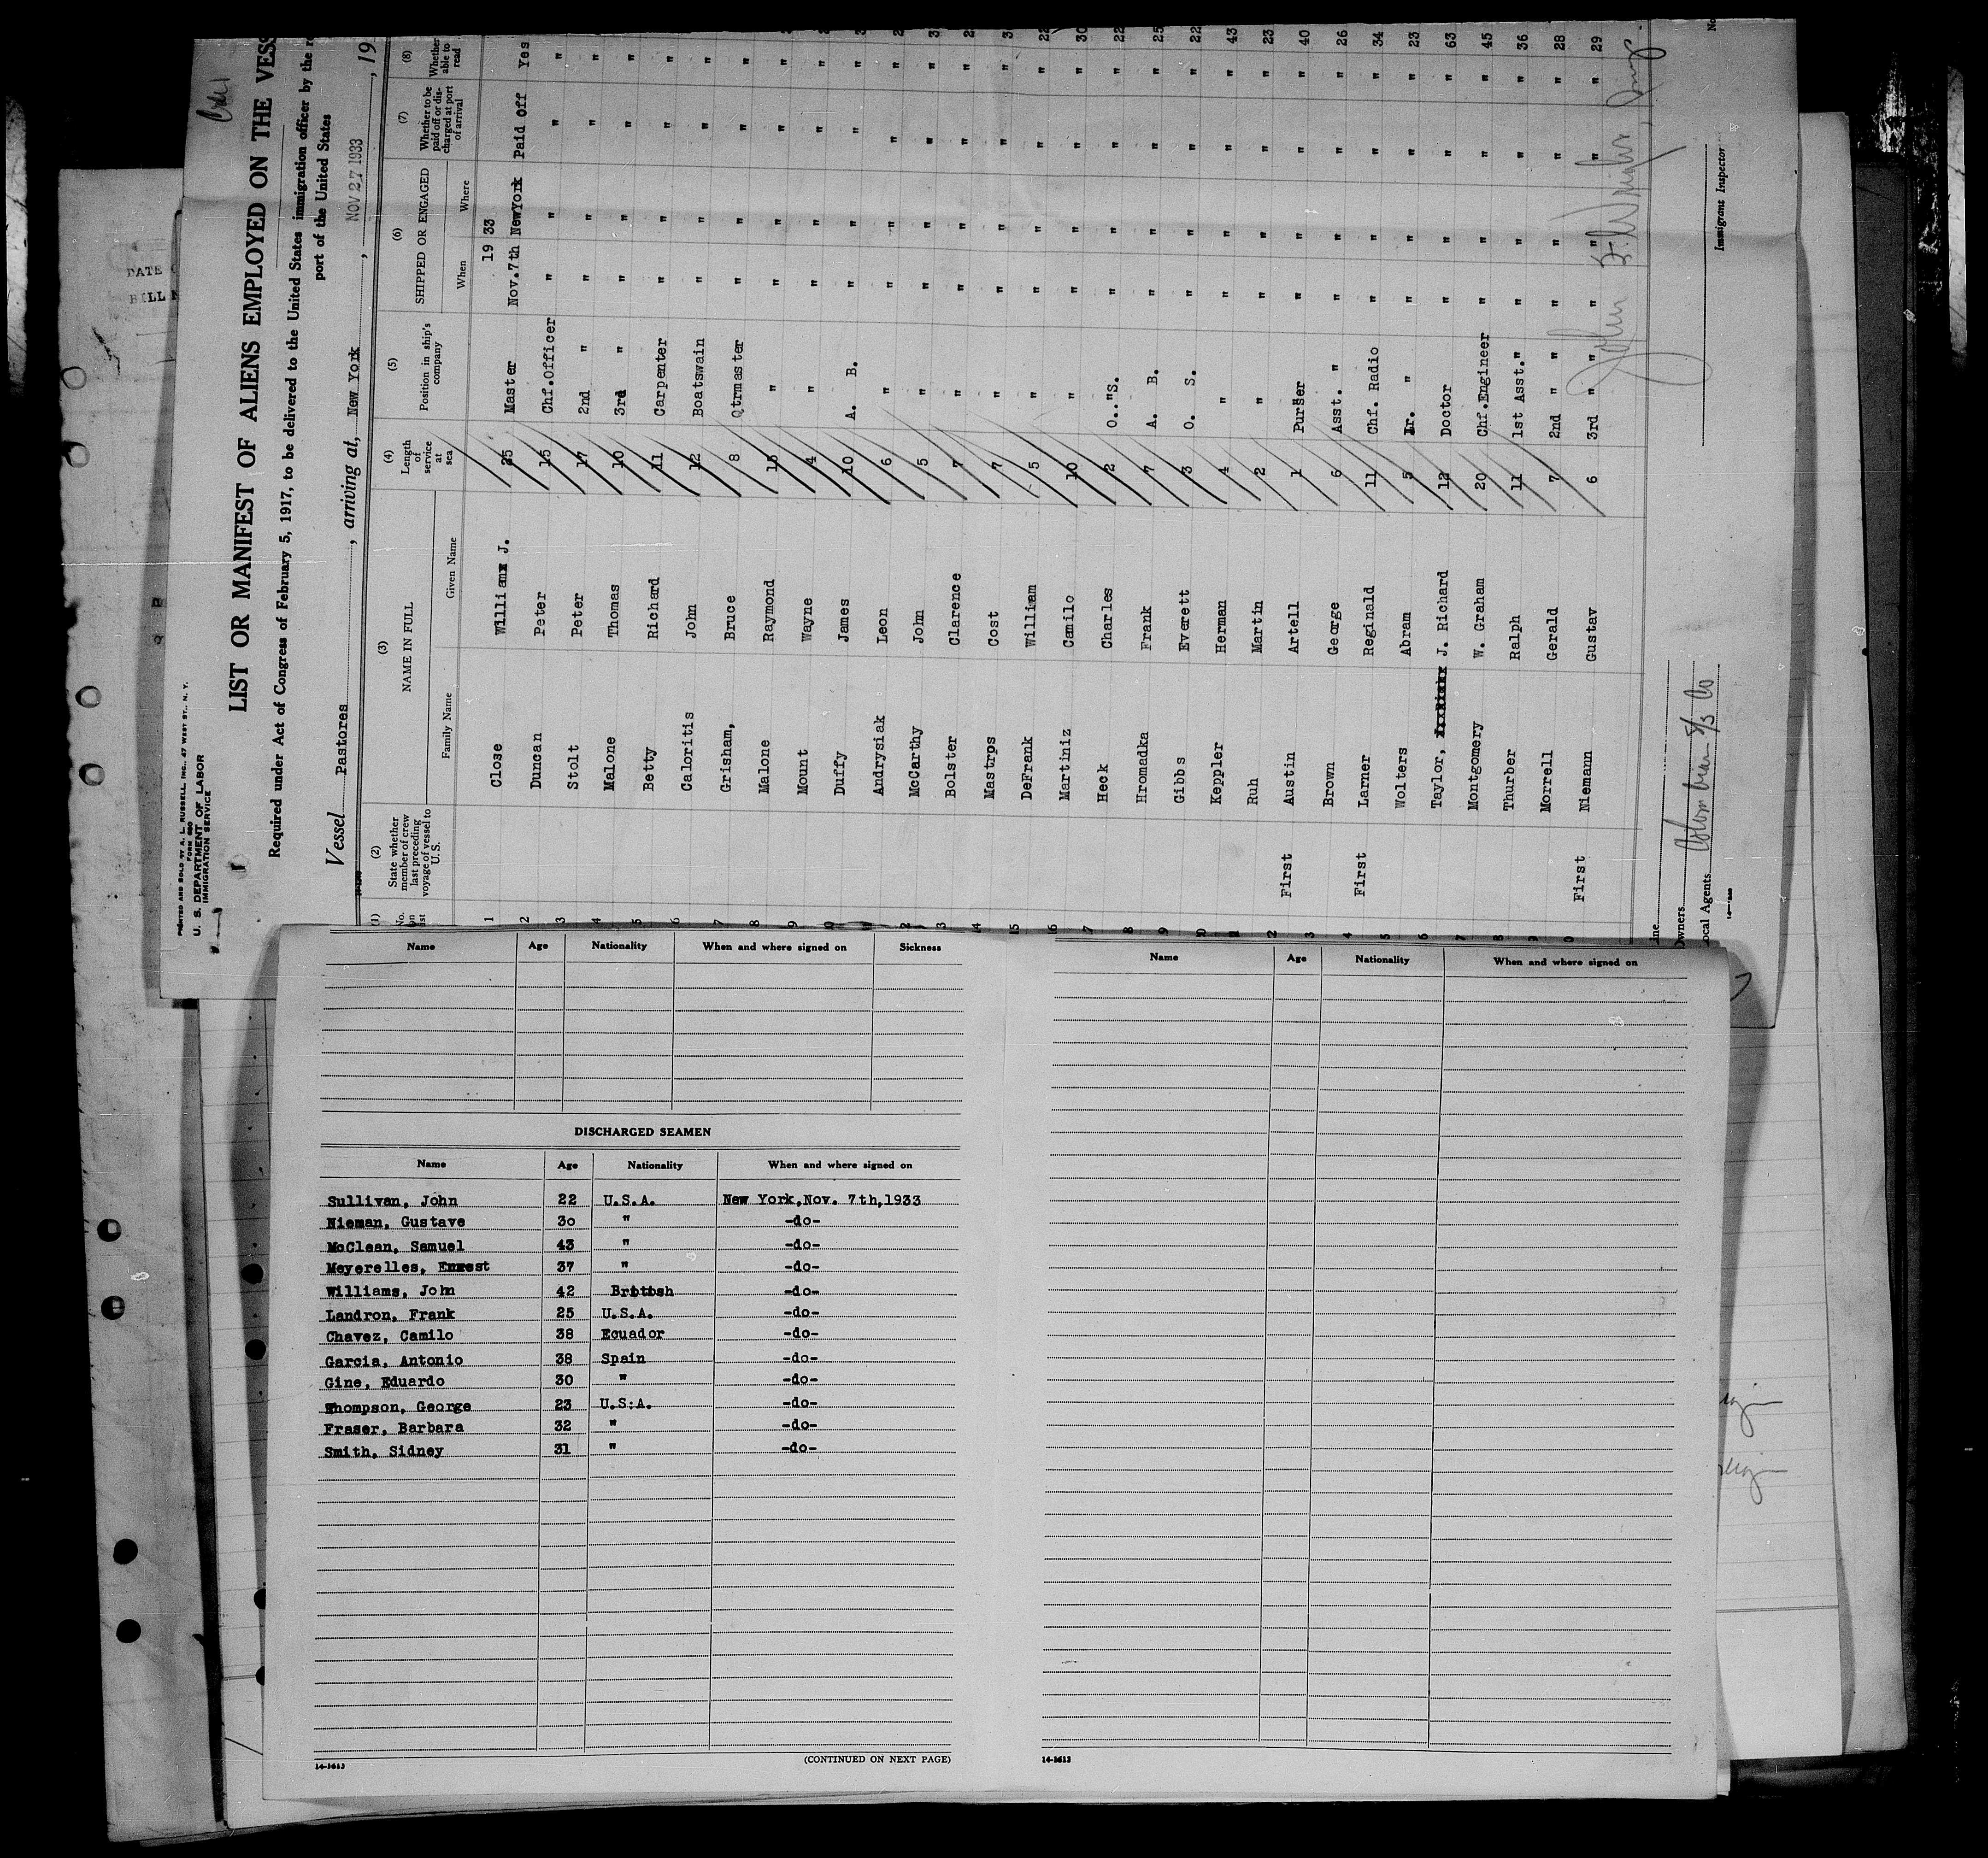 PRINTED AND SOLD BY A. L. RUSSELL, INC., 47 WEST ST., N. Y.
FORM 680
U. S. DEPARTMENT OF LABOR
IMMIGRATION SERVICE
LIST OR MANIFEST OF ALIENS EMPLOYED ON THE VESS
Required under Act of Congress of February 5, 1917, to be delivered to the United States immigration officer by the
port of the United States
Vessel Pastores, arriving at, New York, NOV 27 1933, 19
(1) (2) (3) (4) (5) (6) (7) (8)
No. on list State whether member of crew last preceding voyage of vessel to U.S. NAME IN FULL Length of service at sea Position in ship's company SHIPPED OR ENGAGED Whether to be paid off or discharged at port of arrival Whether able to read
Family Name Given Name When Where
19 33
1 Close William J. 25 Master Nov.7th NewYork Paid off Yes
2 Duncan Peter 15 Chf.Officer " " " "
3 Stolt Peter 17 2nd " " " " "
4 Malone Thomas 10 3rd " " " " "
5 Betty Richard 11 Carpenter " " " "
6 Caloritis John 12 Boatswain " " " "
7 Grisham, Bruce 8 Qtrmaster " " " "
8 Malone Raymond 15 " " " " "
9 Mount Wayne 4 " " " " "
10 Duffy James 10 A. B. " " " "
Andrysiak Leon 6 " " " " "
2 McCarthy John 5 " " " " "
3 Bolster Clarence 7 " " " " "
14 Mastrps Cost 7 " " " " "
15 DeFrank William 5 " " " " "
16 Martiniz Camilo 10 " " " " " 30
7 Heck Charles 2 O.."S. " " " " 22
8 Hromadka Frank 7 A. B. " " " " 25
9 Gibbs Everett 3 O. S. " " " " 22
Keppler Herman 4 " " " " " 43
Ruh Martin 2 " " " " " 23
2 First Austin Artell 1 Purser " " " " 40
3 Brown George 6 Asst. " " " " " 26
4 First Larner Reginald 11 Chf. Radio " " " " 34
5 Wolters Abram 5 Jr. " " " " " 23
6 Taylor, J. Richard 12 Doctor " " " " 63
7 Montgomery W. Graham 20 Chf.Engineer " " " " 45
8 Thurber Ralph 11 1st Asst." " " " " 36
9 Morrell Gerald 7 2nd " " " " " " 28
0 First Niemann Gustav 6 3rd " " " " " " 29
Line
Owners
Local Agents Colombian S/S Co
Immigrant Inspector
DATE
BILL
Name Age Nationality When and where signed on Sickness
DISCHARGED SEAMEN
Name Age Nationality When and where signed on
Sullivan, John 22 U.S.A. New York,Nov. 7th,1933
Nieman, Gustave 30 " -do-
McClean, Samuel 43 " -do-
Meyerelles, Ernest 37 " -do-
Williams, John 42 British -do-
Landron, Frank 25 U.S.A. -do-
Chavez, Camilo 38 Ecuador -do-
Garcia, Antonio 38 Spain -do-
Gine, Eduardo 30 " -do-
Thompson, George 23 U.S.A. -do-
Fraser, Barbara 32 " -do-
Smith, Sidney 31 " -do-
14-1613
(CONTINUED ON NEXT PAGE)
Name Age Nationality When and where signed on
14-1613